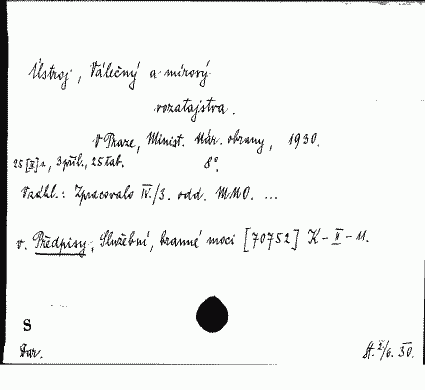 Ústroj, Válečný a mírový
vozatajstva.
V Praze, Minist. Nár. obrany, 1930.
25 [II] s, 3 příl., 25 tab. 8°.
V záhl.: Zpracovalo IV./3. odd. MNO. ...
v. Předpisy, Služební, branné moci [70752] K-II-11.
S
Dar. St. X/6. 30.